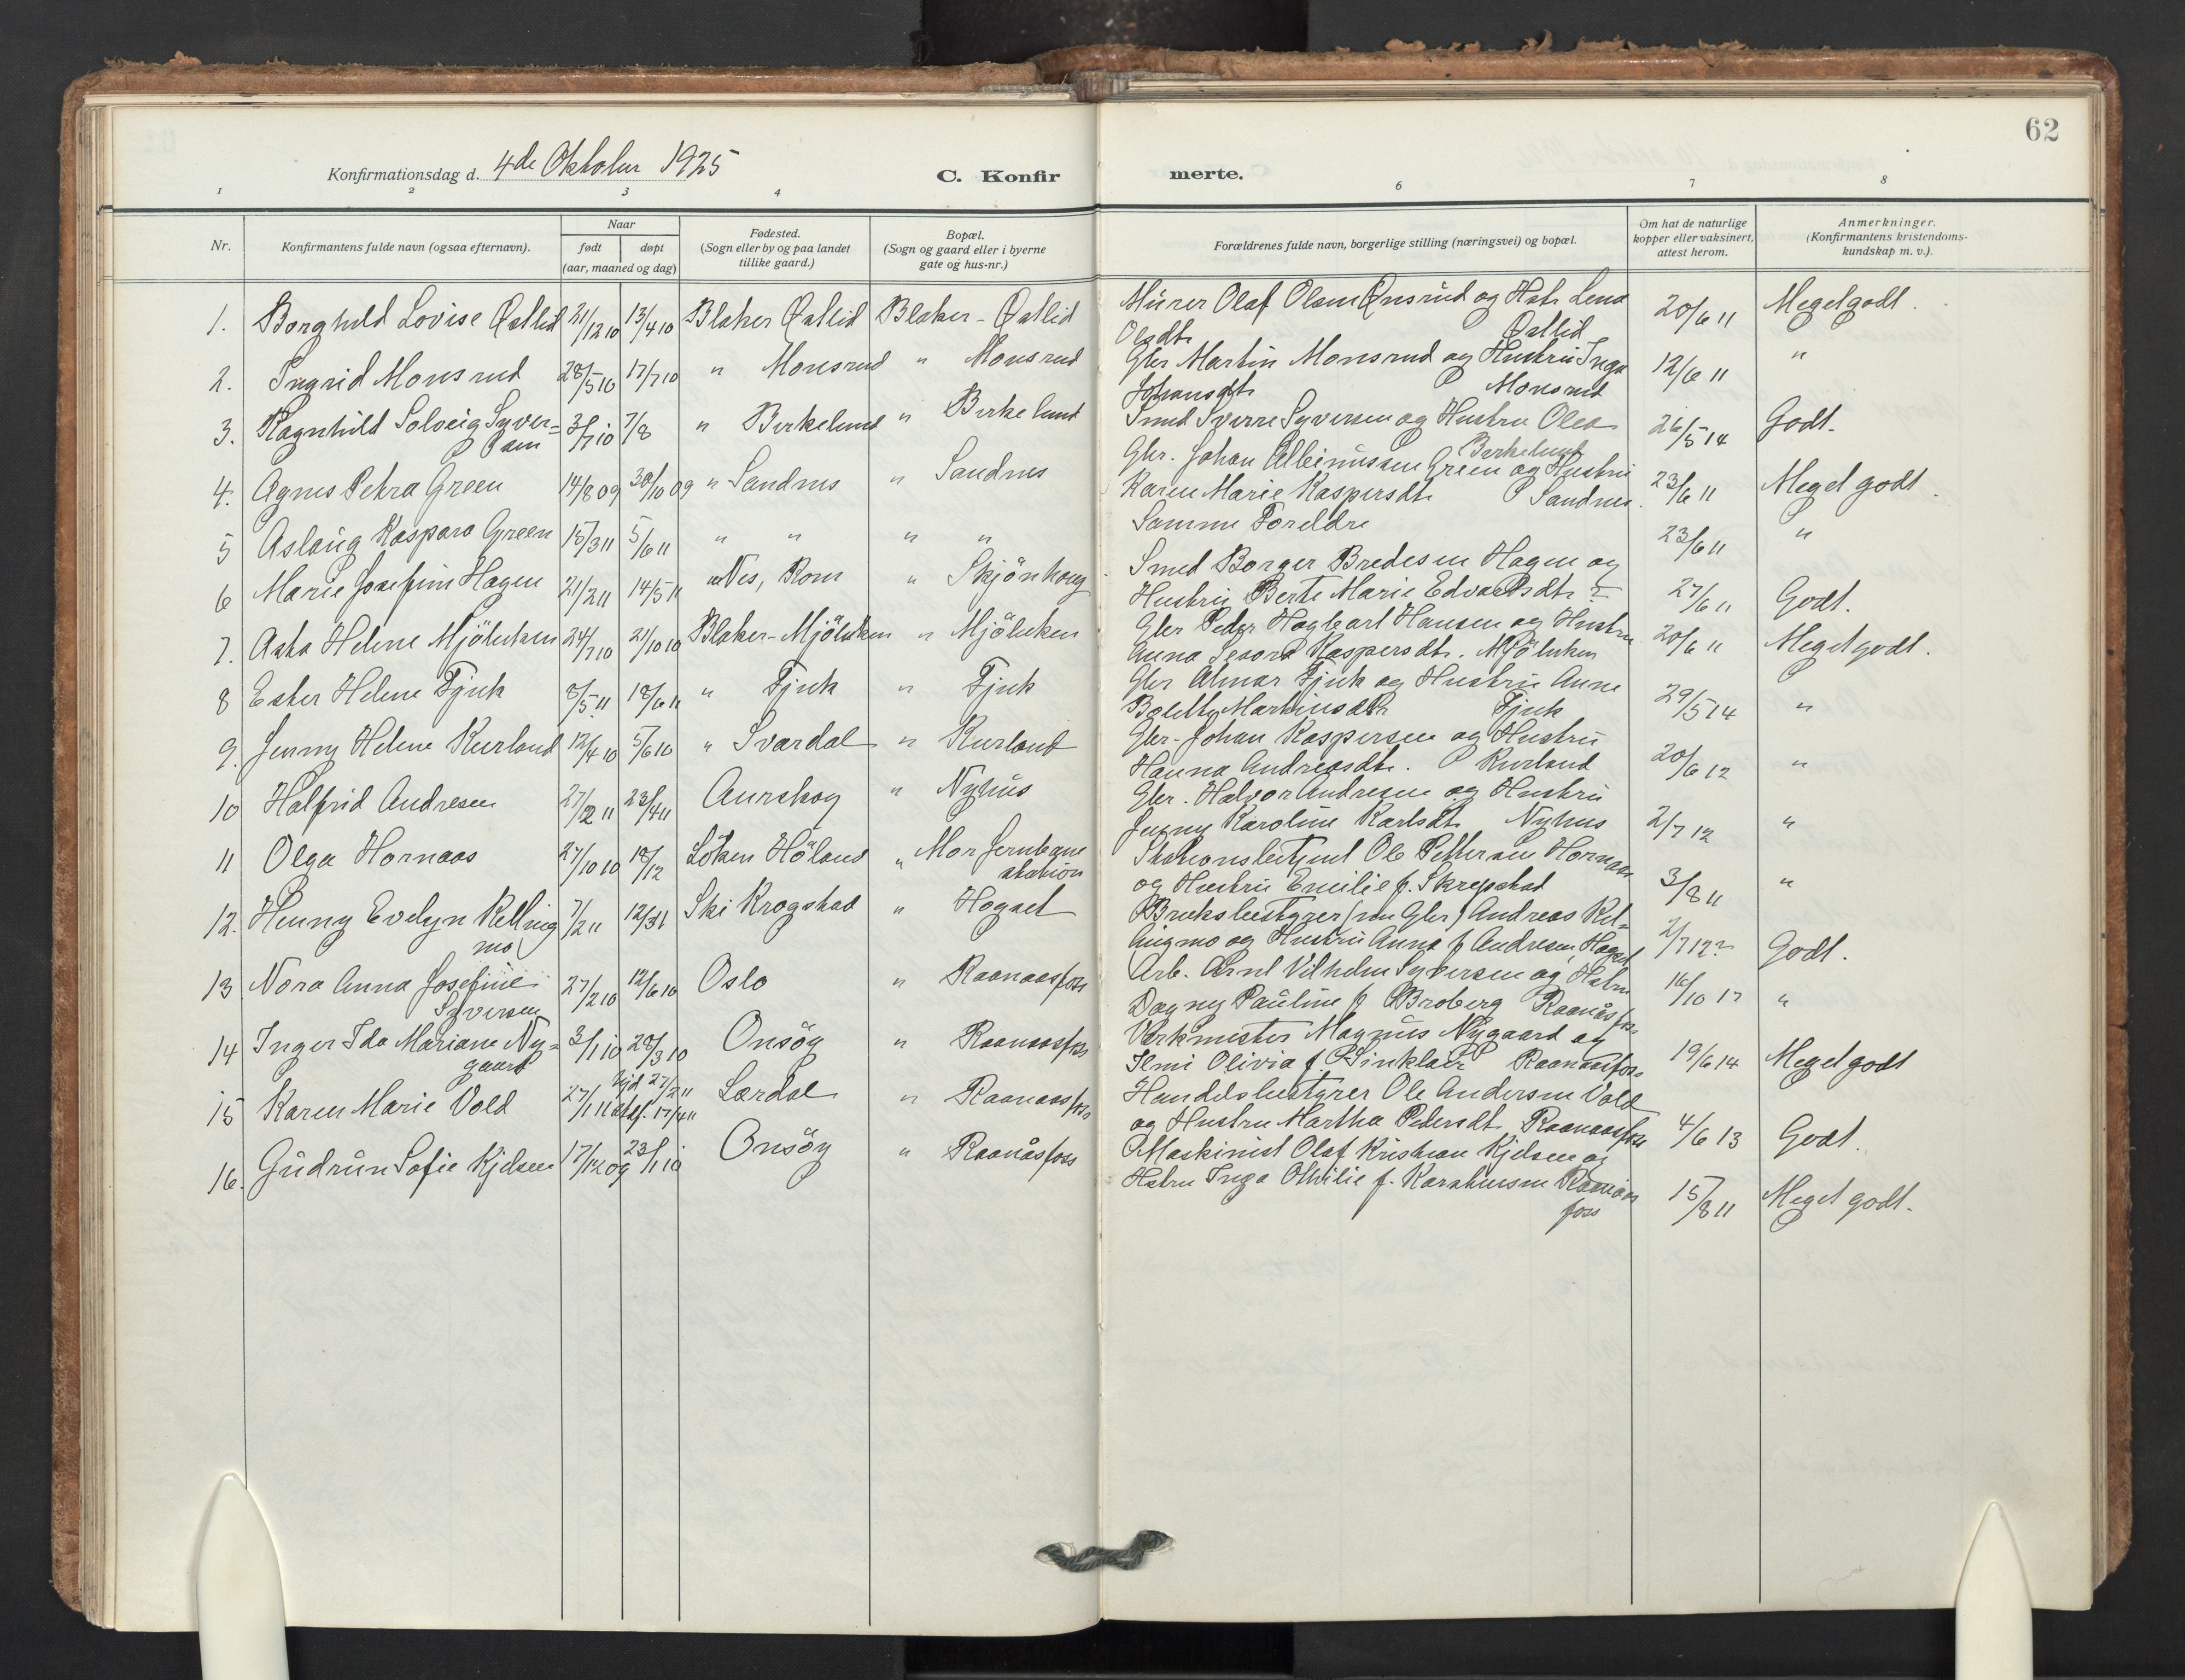 62
Konfirmationsdag d. 4de Oktober 1925
C. Konfir merte.
1 2 3 4 6 7 8
Nr.
Konfirmantens fulde navn (ogsaa efternavn).
Naar
født døpt
(aar, maaned og dag)
Fødested.
(Sogn eller by og paa landet
tillike gaard.)
Bopæl.
(Sogn og gaard eller i byerne
gate og hus-nr.)
Forældrenes fulde navn, borgerlige stilling (næringsvei) og bopæl.
Om hat de naturlige
kopper eller vaksinert,
attest herom.
Anmerkninger.
(Konfirmantens kristendoms-
kundskap m. v.).
1. Borghild Lovise Østlid 21/12 10 13/4 10 Blaker Østlid Blaker - Østlid Murer Olaf Olsen Ønsrud og Hstr Lena 20/6 11 Megetgodt.
Olsdtr Østlid
2. Ingrid Monsrud 28/5 10 17/7 10 " Monsrud " Monsrud Gbr Martin Monsrud og Hustru Inga 12/6 11 "
Johansdtr Monsrud
3. Ragnhild Solveig Syver= 3/7 10 7/8 " Birkelund " Birkelund Smed Sverre Syversen og Hustru Olea 26/5 14 Godt.
sen Birkelund
4. Agnes Petra Green 14/8 09 30/10 09 " Sandnes " Sandnes Gbr. Johan Albinussen Green og Hustru 23/6 11 Meget godt.
Karen Marie Kaspersdtr Sandnes.
5 Aslaug Kaspara Green 15/3 11 5/6 11 " " " " Samme Foreldre 23/6 11 "
6 Marie Josefine Hagen 21/2 11 14/5 11 Nes, Rom " Skjönhaug Smed Borger Bredesen Hagen og 27/6 11 Godt.
Hustru Berte Marie Edvardsdtr ?
7. Asta Helene Mjölnken 24/7 10 2/10 10 Blaker - Mjölnken " Mjölnken Gbr Peder Hagbart Hansen og Hustru 20/6 11 Megetgodt.
Anna Kaspersdtr. Mjölnken
8 Ester Helene Fjuk 8/5 11 18/6 11 " Fjuk " Fjuk Gbr Almar Fjuk og Hustru Anne 29/5 14 "
Bolette Martinusdtr Fjuk
9. Jenny Helene Kurland 12/4 10 5/6 10 " Svardal " Kurland Gbr. Johan Kaspersen og Hustru 20/6 12 "
Hanna Andreasdtr. Kurland
10 Halfrid Andresen 27/2 11 23/4 11 Aurskog " Nyhus Gbr. Halvor Andresen og Hustru 2/7 12 "
Jenny Karoline Karlsdtr Nyhus
11 Olga Hornaas 27/10 10 18/12 Löken Höland " Mor Jernbane Stationsbetjent Ole Pettersen Hornaas 3/8 11 "
station og Hustru Emilie f. Skrepstad
12. Henny Evelyn Relling 7/2 11 Ski Krogstad " Hogset Bruksbestyrer (nu Gbr) Andreas Rel= 2/7 12? Godt.
mo lingmo og Hustru Anna f Andresen, Hogset
13 Nora Anna Josefine 27/2 10 12/6 10 Oslo " Raanaasfoss Arb. Arnt Vilhelm Syversen og Hstru 16/10 17 "
Syversen Dagny Pauline f Broberg Raanåsfoss
14 Inger Ida Mariane Ny= 3/1 10 28/3 10 Onsöy " Raanaasfoss Verkmester Magnus Nygaard og 19/6 14 Meget godt
gaard Ilmi Olivia f. Sinklair Raanaasfoss
15 Karen Marie Vold 27/1 11 hjd 27/2 11 Lærdal " Raanaasfoss Handelsbestyrer Ole Andersen Vold 4/6 13 Godt.
stdf. 17/4 11 og Hustru Martha Pedersdtr Raanaasfoss
16. Gudrun Sofie Kjelsen 17/12 09 23/1 10 Onsöy " Raanåsfoss Maskinist Olaf Kristian Kjelsen og 15/8 11 Meget godt.
Hstru Inga Othilie f. Karstensen Raanaas
foss